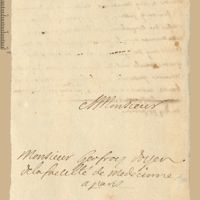 Monsieur
Monsieur Geofroy doyen
de la faculté de medecinne
a paris